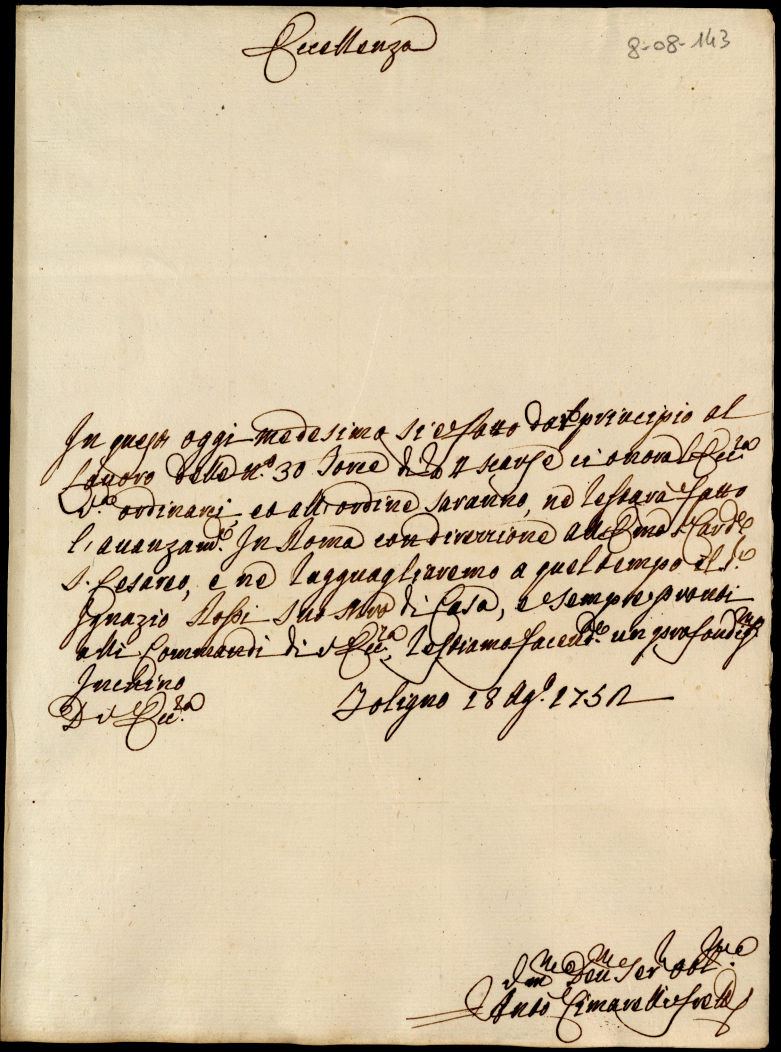 Eccellenza
8-08-143
In quest' oggi medesimo si è fatto dar principio al
Lavoro delle n.º 30 Torcie di 4 scarse ci onora l'Ecc.za
V.ra ordinarci, ed all'ordine saranno, ne restarà fatto
l'avanzam.to In Roma con direzzione all' Em.e Card.e
S. Cesareo, e ne ragguagliaremo a quel tempo il S.r
Ignazio Rossi suo Mro di Casa, e sempre pronti
alli Commandi di V. Ecc.za, restiamo facend.le un profondis.mo
Inchino
D. V. Ecc.za
Foligno 18 Ag.o 1752
Dev.mi Ser.
Anto Cimarelli e Fratelli